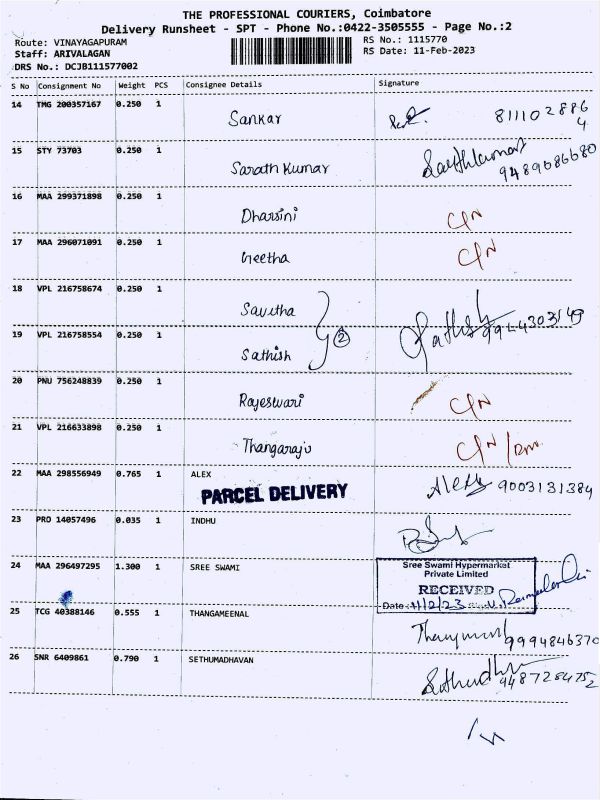 THE PROFESSIONAL COURIERS, Coimbatore
Delivery Runsheet - SPT - Phone No.:0422-3505555 - Page No.:2
Route: VINAYAGAPURAM RS No.: 1115770
Staff: ARIVALAGAN RS Date: 11-Feb-2023
DRS No.: DCJB111577002
S No Consignment No Weight PCS Consignee Details Signature
14 TMG 200357167 0.250 1 Sankar 8111028864
15 STY 73703 0.250 1 Sarath Kumar Sarathkumar 9489686680
16 MAA 299371898 0.250 1 Dharsini C/N
17 MAA 296071091 0.250 1 Geetha C/N
18 VPL 216758674 0.250 1 Savitha
19 VPL 216758554 0.250 1 Sathish 2 Sathish 9944303149
20 PNU 756248839 0.250 1 Rajeswari C/N
21 VPL 216633898 0.250 1 Thangaraju C/N
22 MAA 298556949 0.765 1 ALEX Alex 9003131384
PARCEL DELIVERY
23 PRO 14057496 0.035 1 INDHU
24 MAA 296497295 1.300 1 SREE SWAMI
Sree Swami Hypermarket
Private Limited
RECEIVED
Date 11/2/23
25 TCG 40388146 0.555 1 THANGAMEENAL 9994846370
26 SNR 6409861 0.790 1 SETHUMADHAVAN 9487284752